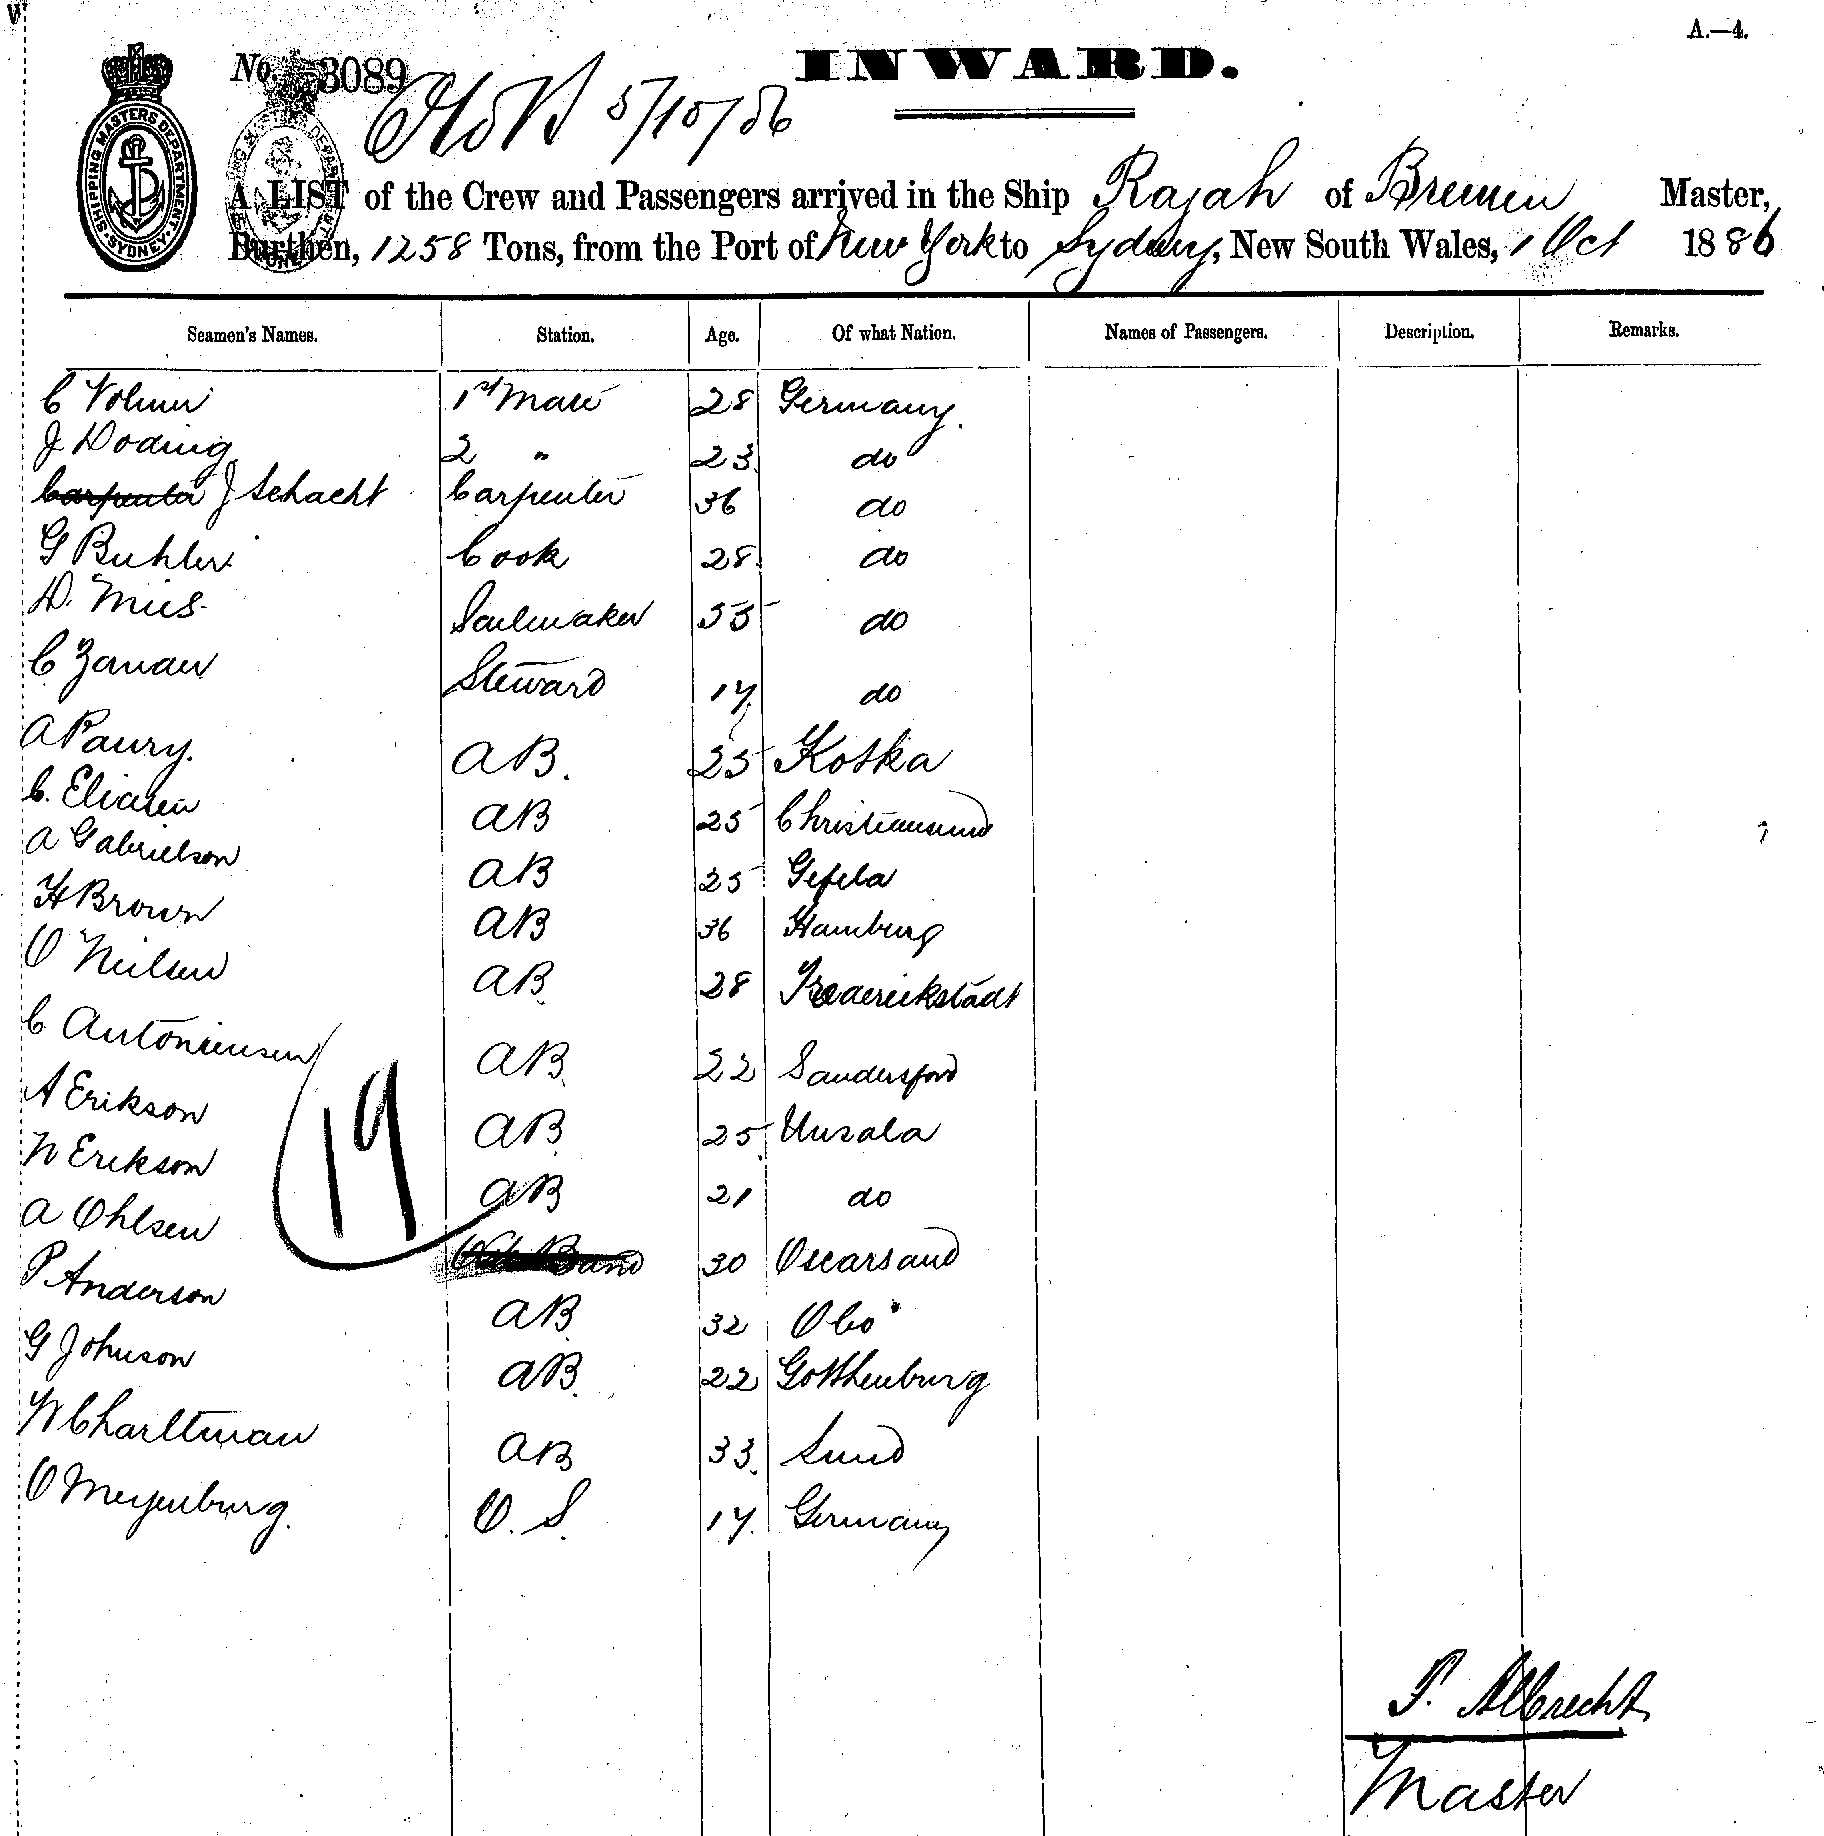 A.—4.
No. 3089
INWARD.
5/10/86
SHIPPING MASTERS DEPARTMENT. SYDNEY.
A LIST of the Crew and Passengers arrived in the Ship Rajah of Bremen Master,
Burthen, 1258 Tons, from the Port of New York to Sydney, New South Wales, 1 Oct 1886
Seamen's Names. Station. Age. Of what Nation. Names of Passengers. Description. Remarks.
C Volmer 1st Mate 28 Germany.
J Doding 2 " 23 do
Carpenter J Schacht Carpenter 36 do
G Buhler Cook 28 do
D. Mies Sailmaker 55 do
C Zanau Steward 17 do
A Paury. AB. 25 Kotka
C. Eliasen AB 25 Christiansund
A Gabrielson AB 25 Gefela
H Brown AB 36 Hamburg
O Neilsen AB 28 Frederickstadt
C Antoniensen AB 22 Sandersford
A Erikson AB 25 Unsala
N Erikson AB 21 do
A Ohlsen 30 Oscarsand
P Anderson AB 32 Obo
G Johnson AB 22 Gotthenburg
W Charltman AB 33 Sund
O Meyenburg. O. S. 17 Germany
19
P. Albrecht
Master